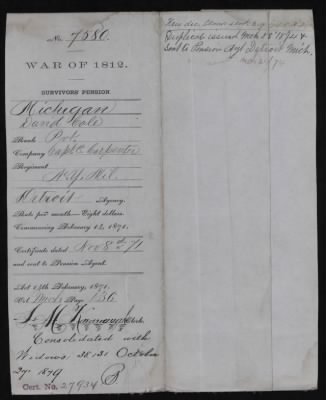 No. 7580.
WAR OF 1812.
SURVIVORS' PENSION
Michigan
David Cole
Rank Pvt.
Company Capt. C. Carpenter
Regiment
N.Y. Mil.
Detroit Agency.
Rate per month—Eight dollars.
Commencing February 14, 1871.
Certificate dated Nov 8th 71
and sent to Pension Agent.
Act 14th February, 1871.
Vol. Mich. Page 136
Clerk.
Consolidated with
Widows 38131 October
27, 1879
Cert. No. 27934 B
Duplicate issued Mch 18/74 &
sent to Pension Agt Detroit Mich.